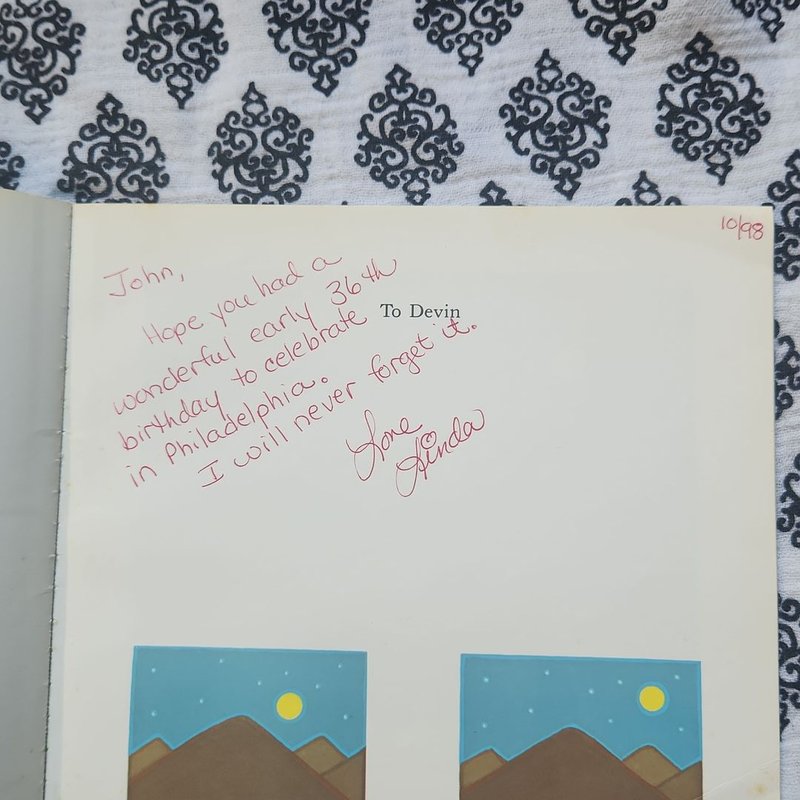 10/98
John,
Hope you had a
wonderful early 36th
birthday to celebrate
in Philadelphia.
I will never forget it.
Love
Linda
To Devin